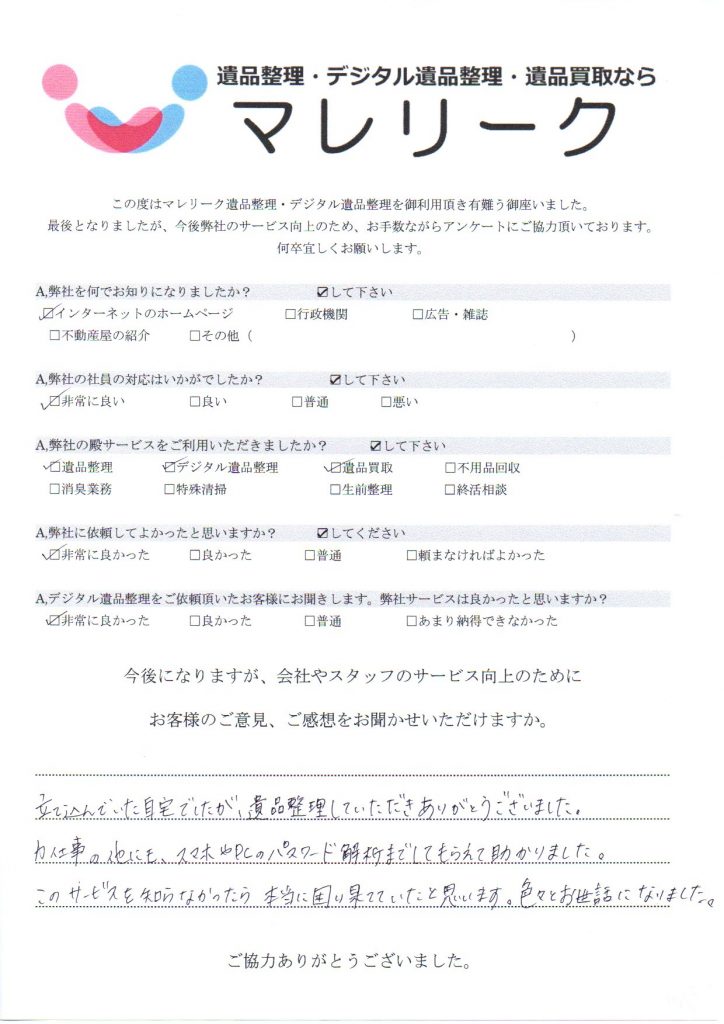 遺品整理・デジタル遺品整理・遺品買取なら
マレリーク
この度はマレリーク遺品整理・デジタル遺品整理を御利用頂き有難う御座いました。
最後となりましたが、今後弊社のサービス向上のため、お手数ながらアンケートにご協力頂いております。
何卒宜しくお願いします。
A,弊社を何でお知りになりましたか？ ☑して下さい
☑インターネットのホームページ □行政機関 □広告・雑誌
□不動産屋の紹介 □その他（ ）
A,弊社の社員の対応はいかがでしたか？ ☑して下さい
☑非常に良い □良い □普通 □悪い
A,弊社の殿サービスをご利用いただきましたか？ ☑して下さい
☑遺品整理 ☑デジタル遺品整理 ☑遺品買取 □不用品回収
□消臭業務 □特殊清掃 □生前整理 □終活相談
A,弊社に依頼してよかったと思いますか？ ☑してください
☑非常に良かった □良かった □普通 □頼まなければよかった
A,デジタル遺品整理をご依頼頂いたお客様にお聞きします。弊社サービスは良かったと思いますか？
☑非常に良かった □良かった □普通 □あまり納得できなかった
今後になりますが、会社やスタッフのサービス向上のために
お客様のご意見、ご感想をお聞かせいただけますか。
立て込んでいた自宅でしたが、遺品整理していただきありがとうございました。
力仕事の他にも、スマホやPCのパスワード解析までしてもらえて助かりました。
このサービスを知らなかったら本当に困り果てていたと思います。色々とお世話になりました。
ご協力ありがとうございました。